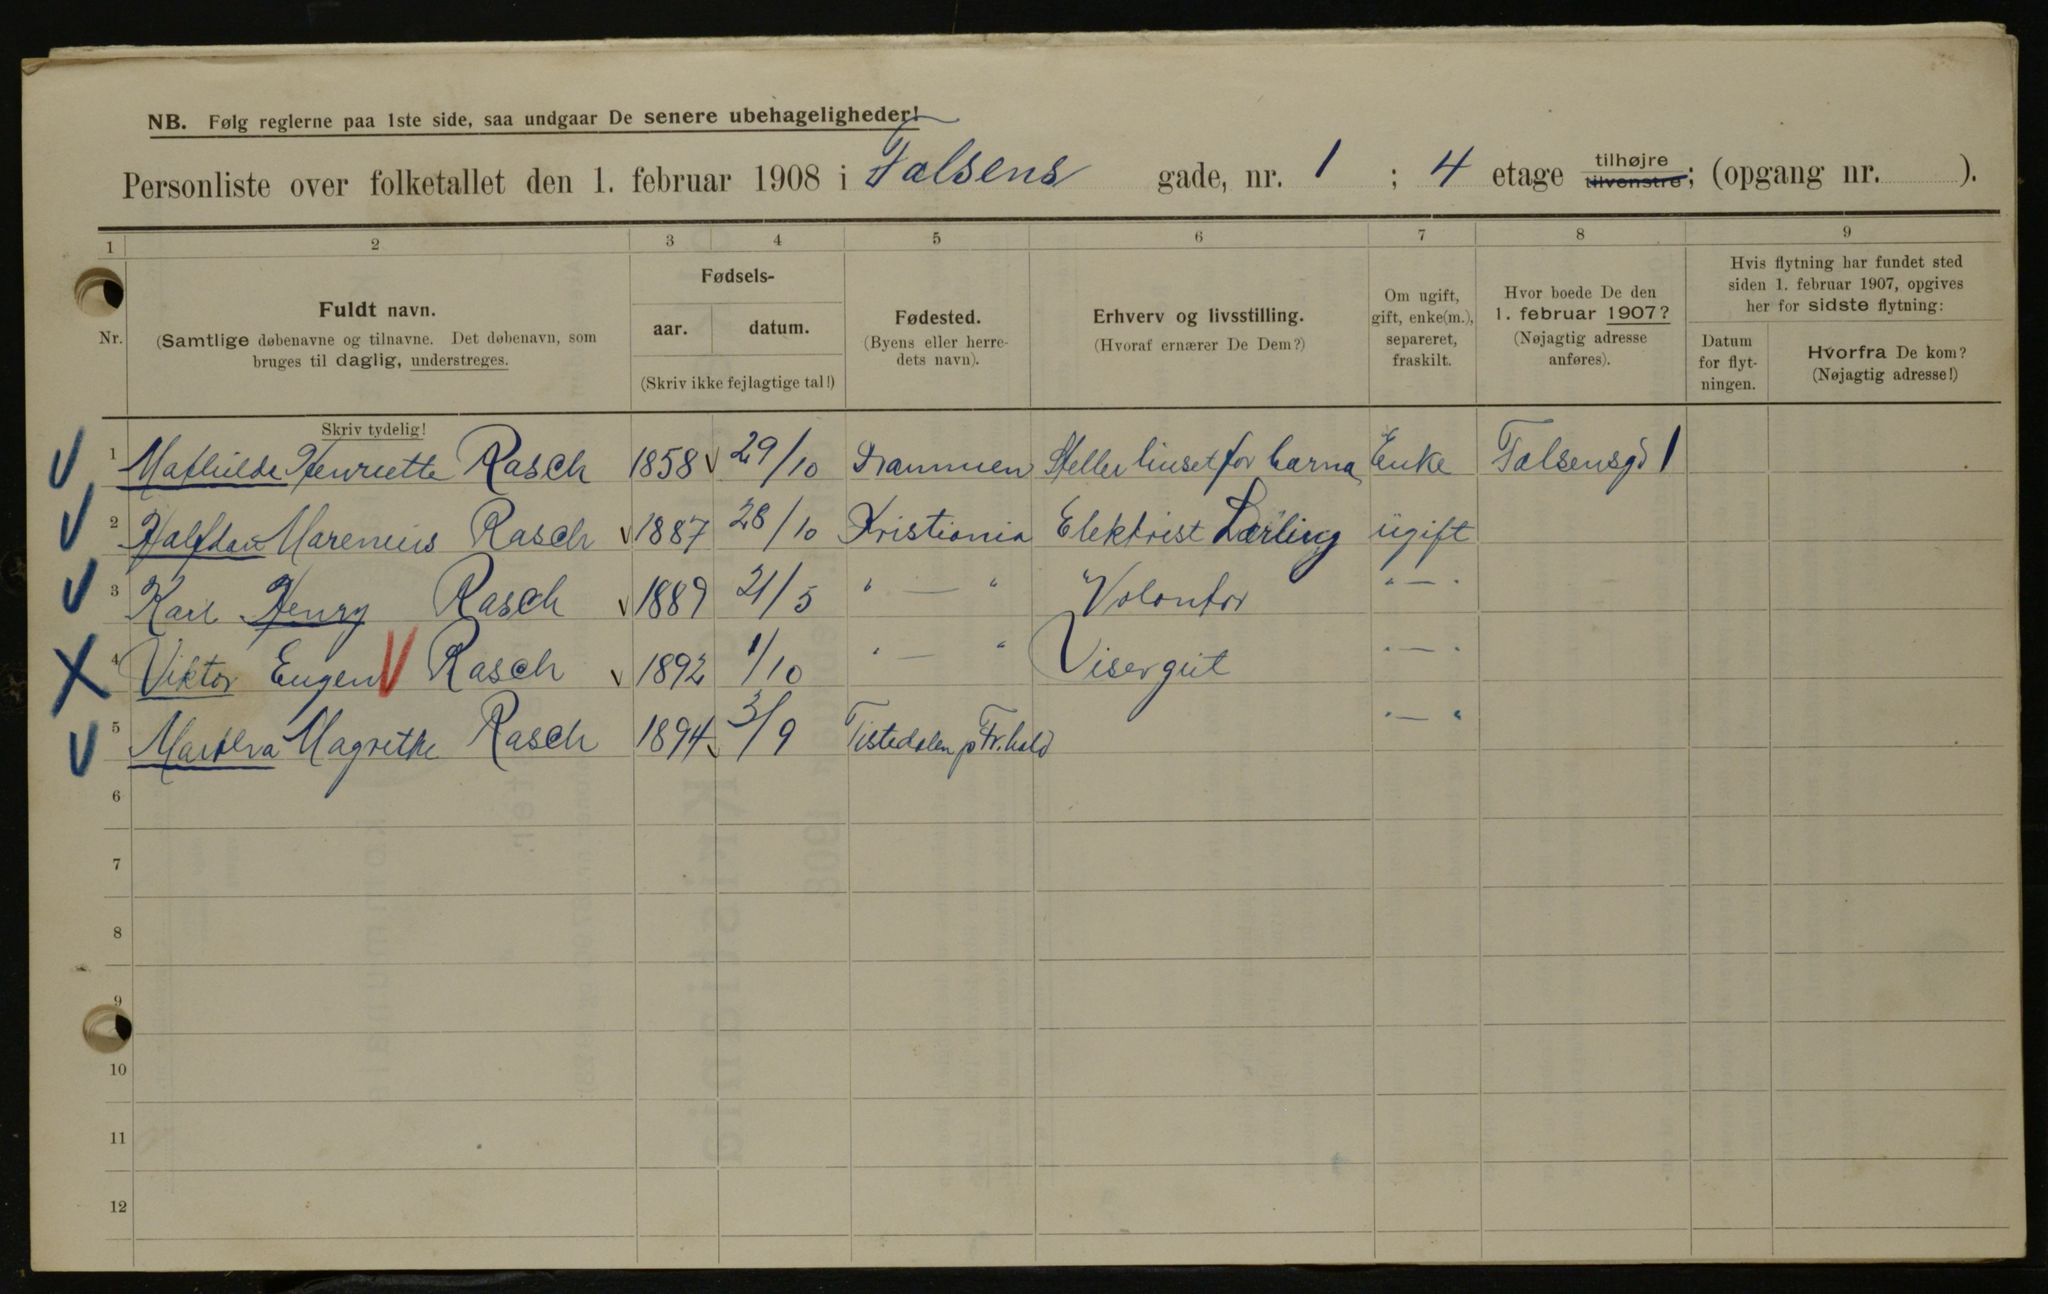 NB. Følg reglerne paa 1ste side, saa undgaar De senere ubehageligheder!
Personliste over folketallet den 1. februar 1908 i Falsens gade, nr. 1 ; 4 etage tilhøjre tilvenstre; (opgang nr. ).
1 2 3 4 5 6 7 8 9
Nr.
Fuldt navn.
(Samtlige døbenavne og tilnavne. Det døbenavn, som
bruges til daglig, understreges.
Skriv tydelig!
Fødsels-
aar. datum.
(Skriv ikke fejlagtige tal!)
Fødested.
(Byens eller herre-
dets navn).
Erhverv og livsstilling.
(Hvoraf ernærer De Dem?)
Om ugift,
gift, enke(m.),
separeret,
fraskilt.
Hvor boede De den
1. februar 1907?
(Nøjagtig adresse
anføres).
Hvis flytning har fundet sted
siden 1. februar 1907, opgives
her for sidste flytning:
Datum
for flyt-
ningen.
Hvorfra De kom?
(Nøjagtig adresse!)
1 Mathilde Henriette Rasch 1858 29/10 Drammen Steller huset for barna Enke Falsensgd 1
2 Halfdan Marenius Rasch 1887 28/10 Kristiania Elektrist Lærling ugift
3 Karl Henry Rasch 1889 21/5 " — " Volontør " — "
4 Viktor Eugen Rasch 1892 1/10 " — " Visergut " — "
5 Magrethe Rasch 1894 3/9 Tistedalen p Fr.hald " — "
6
7
8
9
10
11
12